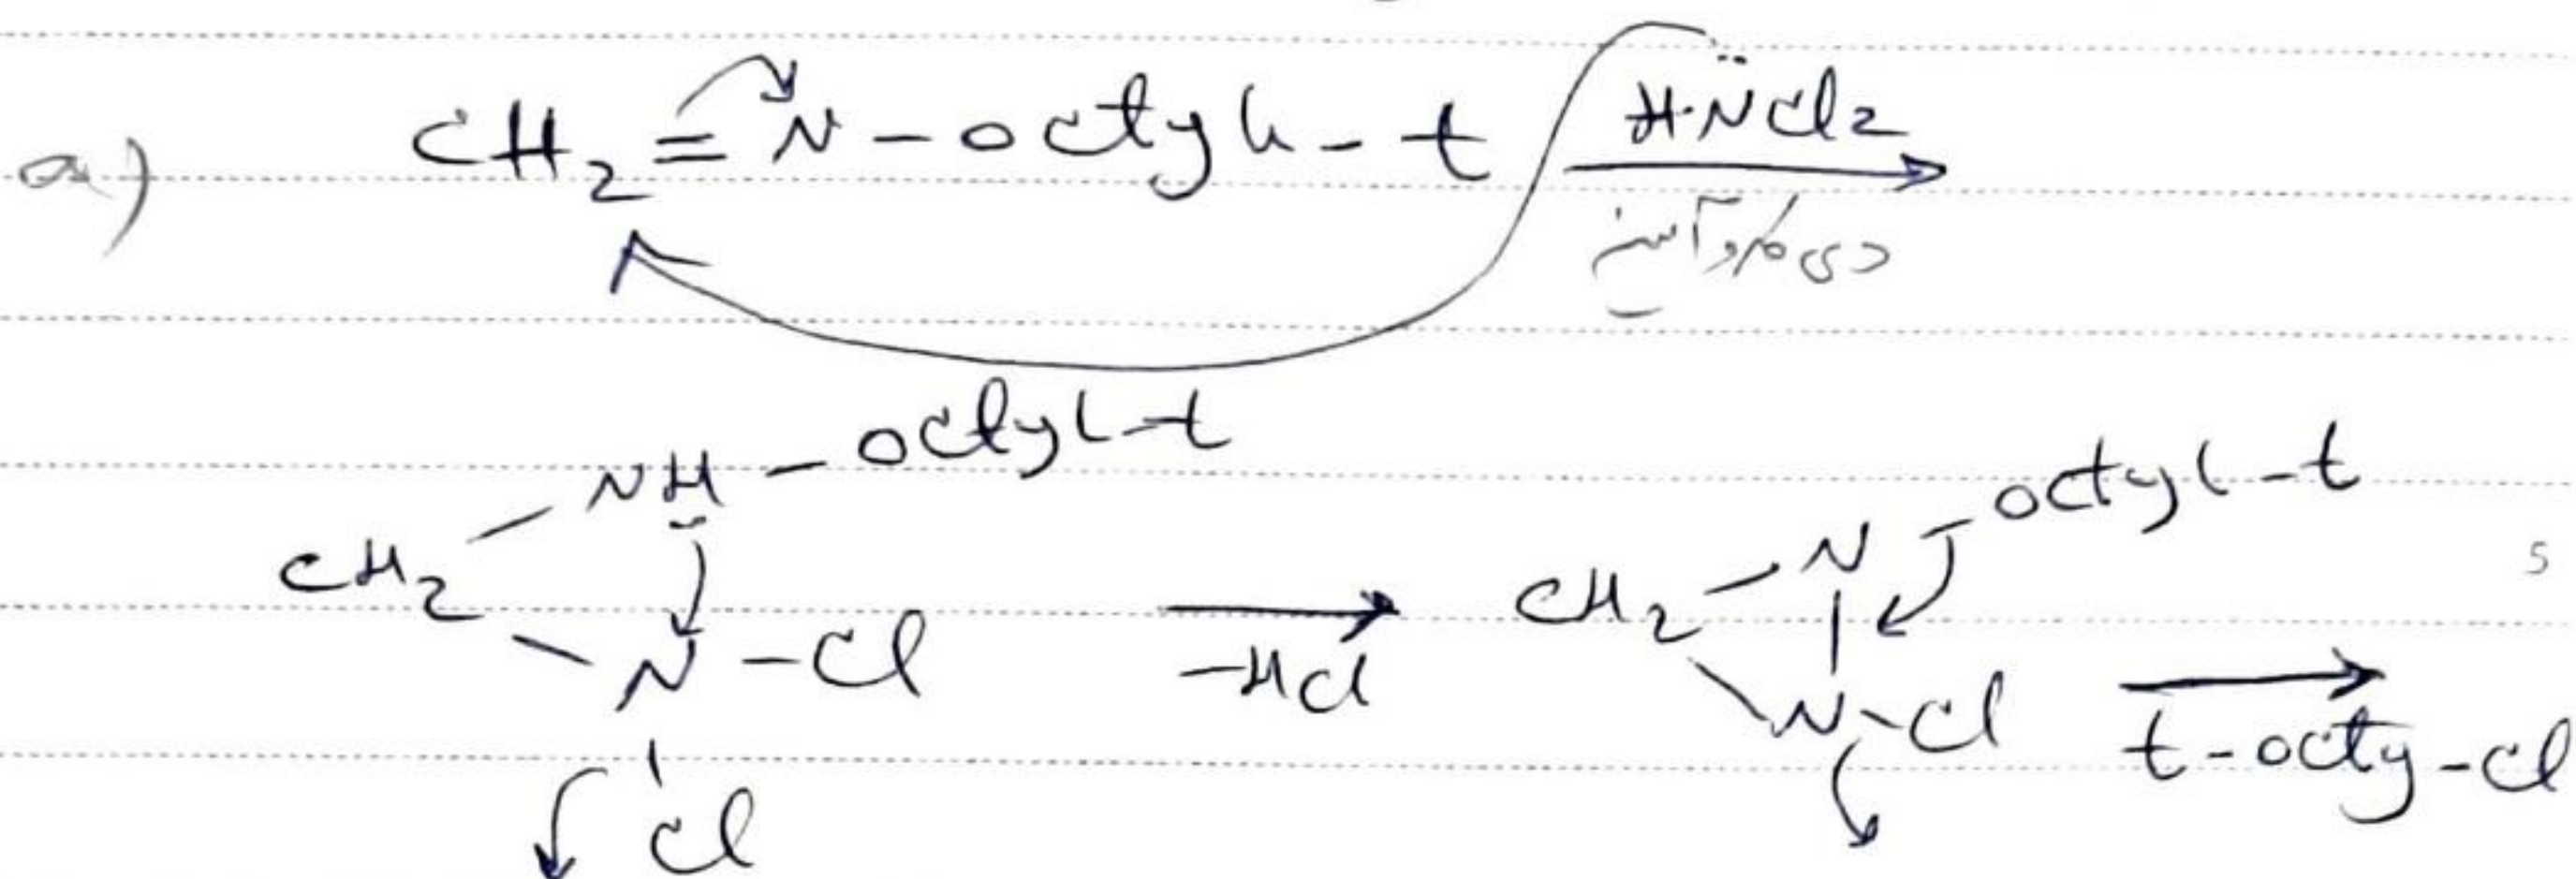 a) CH2 = N - octyl - t H-N̈Cl2
دی کلروآمین
CH2 - NH - octyl-t
N - Cl
Cl
-HCl
CH2 - N - octyl-t
N - Cl
t-octy-Cl